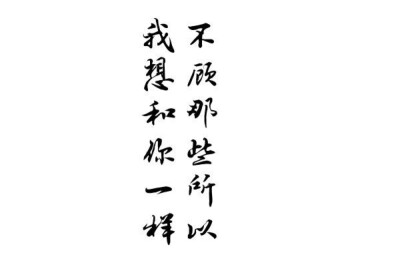 不顾那些所以
我想和你一样